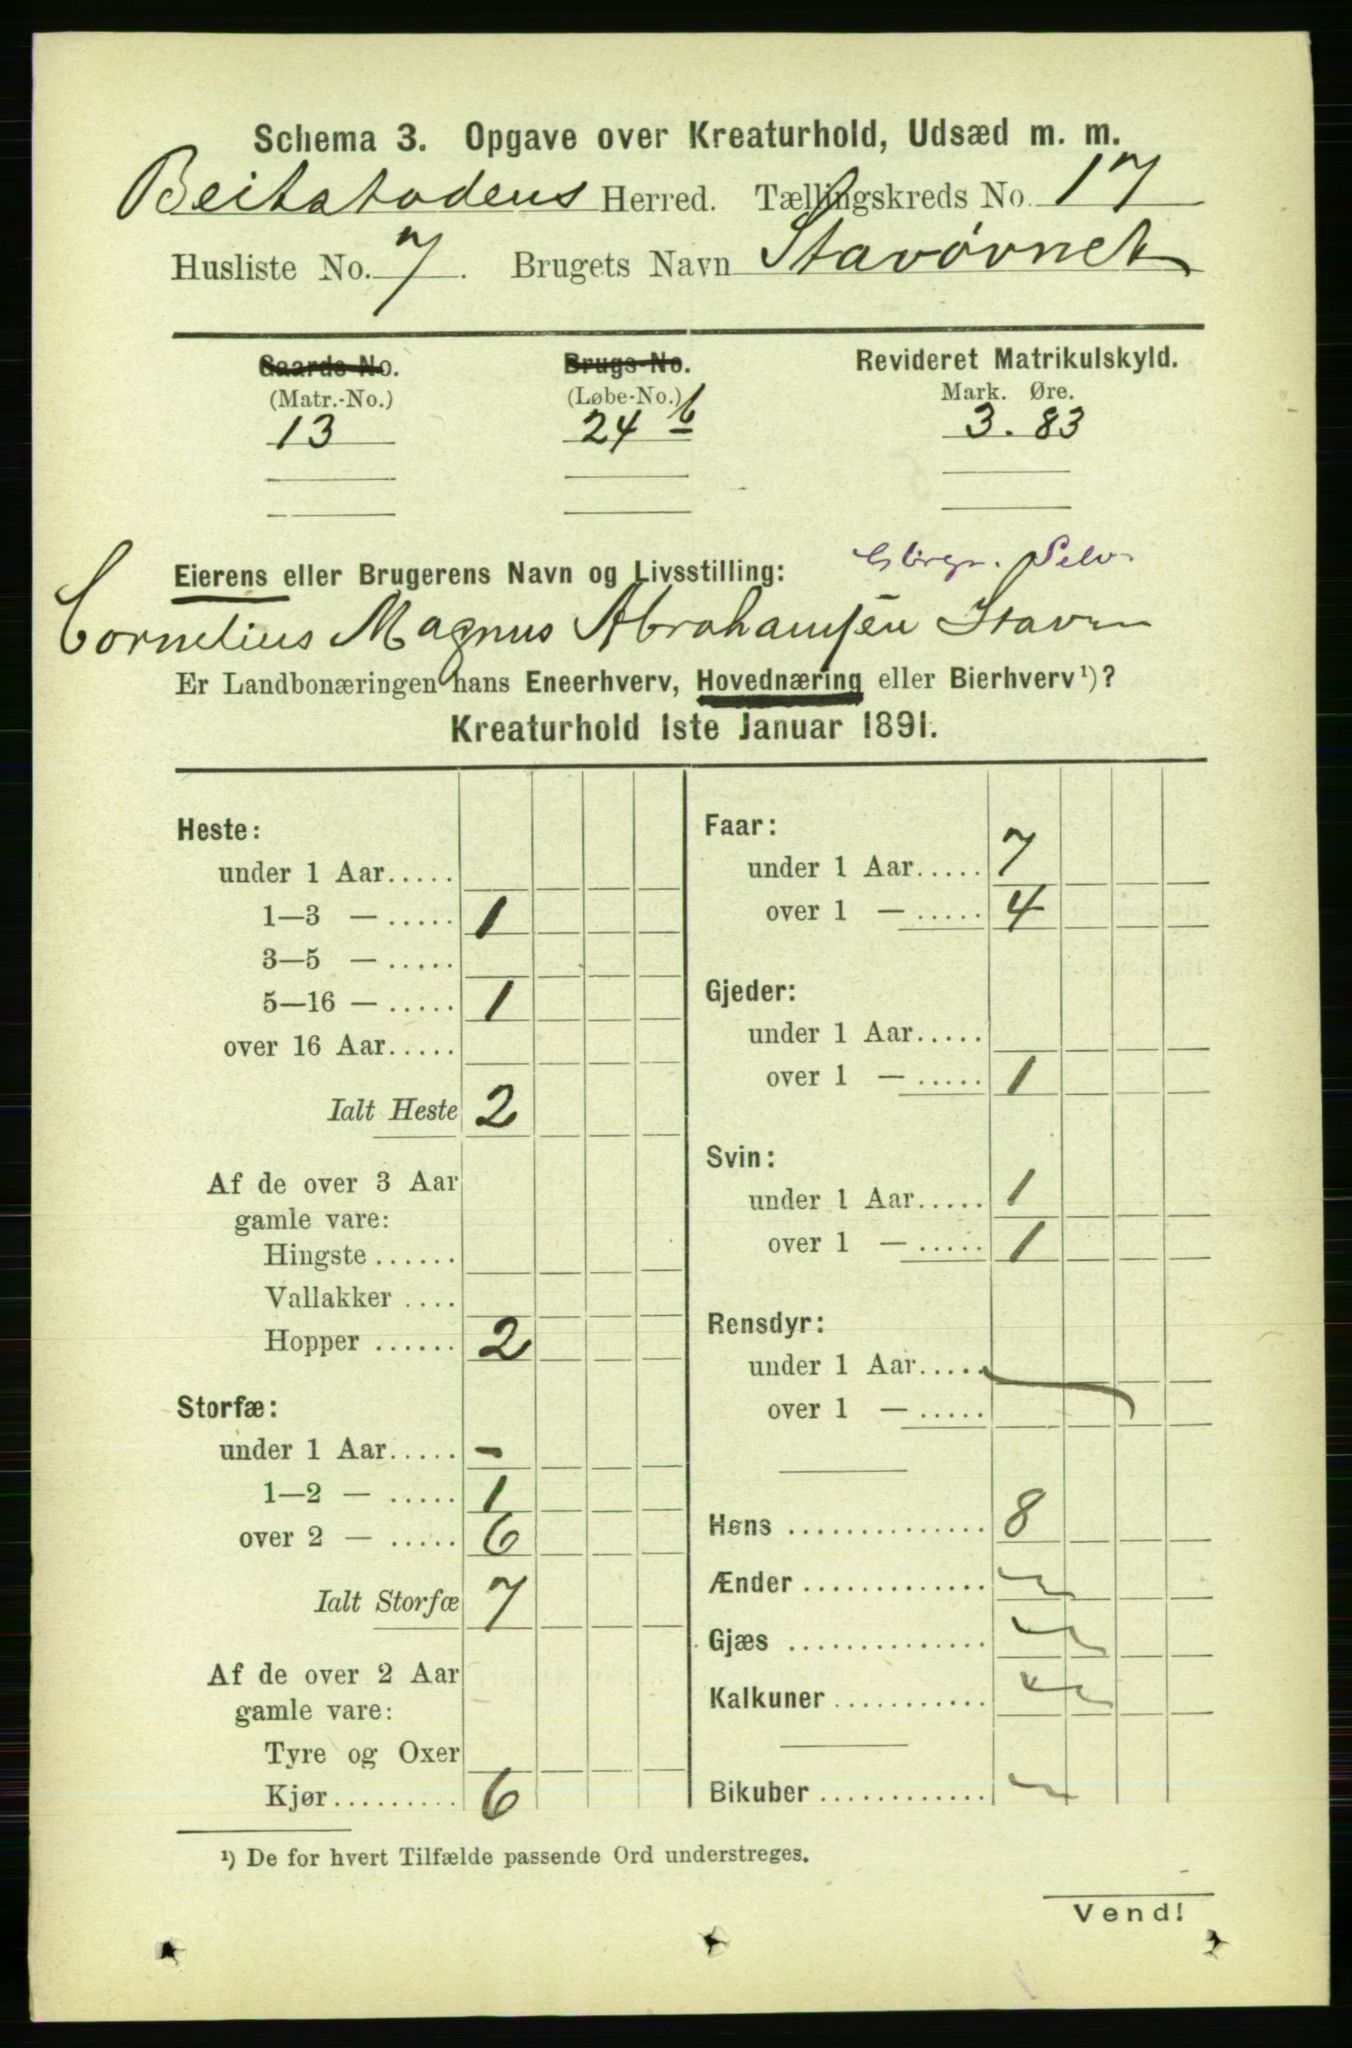 Schema 3. Opgave over Kreaturhold, Udsæd m. m.
Beitstadens Herred. Tællingskreds No. 17
Husliste No. 7. Brugets Navn Stavøvnet
Gaards-No. Brugs-No. Revideret Matrikulskyld.
(Matr.-No.) (Løbe-No.) Mark. Øre.
13 24 b 3. 83
Selv
Eierens eller Brugerens Navn og Livsstilling:
Cornelius Magnus Abrahamsen Stavrn
Er Landbonæringen hans Eneerhverv, Hovednæring eller Bierhverv¹)?
Kreaturhold 1ste Januar 1891.
Heste:
under 1 Aar.....
1—3 — ..... 1
3—5 — .....
5—16 — ..... 1
over 16 Aar.....
Ialt Heste 2
Af de over 3 Aar
gamle vare:
Hingste ......
Vallakker ....
Hopper ...... 2
Storfæ:
under 1 Aar..... -
1—2 — ..... 1
over 2 — ..... 6
Ialt Storfæ 7
Af de over 2 Aar
gamle vare:
Tyre og Oxer
Kjør......... 6
Faar:
under 1 Aar..... 7
over 1 — ..... 4
Gjeder:
under 1 Aar.....
over 1 — ..... 1
Svin:
under 1 Aar..... 1
over 1 — ..... 1
Rensdyr:
under 1 Aar.....
over 1 — .....
Høns .............. 8
Ænder .............
Gjæs ..............
Kalkuner ...........
Bikuber ............
¹) De for hvert Tilfælde passende Ord understreges.
Vend!